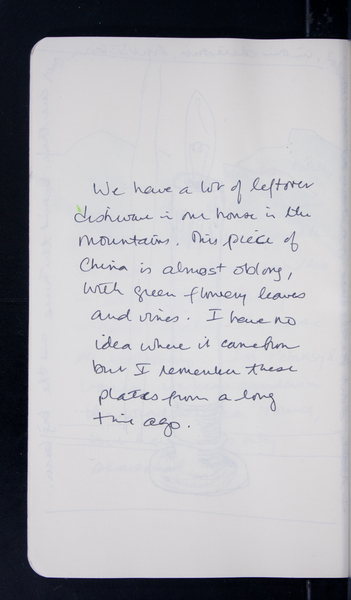 We have a lot of leftover
dishware in our house in the
mountains. This piece of
China is almost oblong,
with green flowery leaves
and vines. I have no
idea where it came from
but I remember these
plates from a long
time ago.